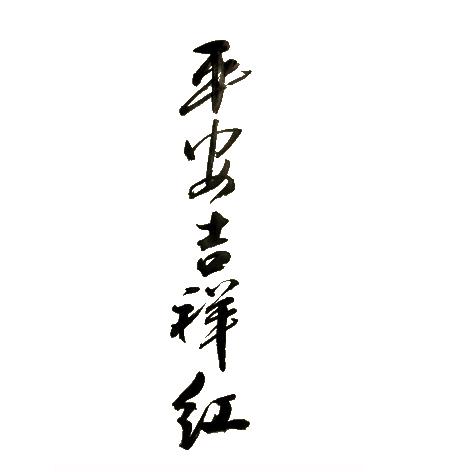 平安吉祥红